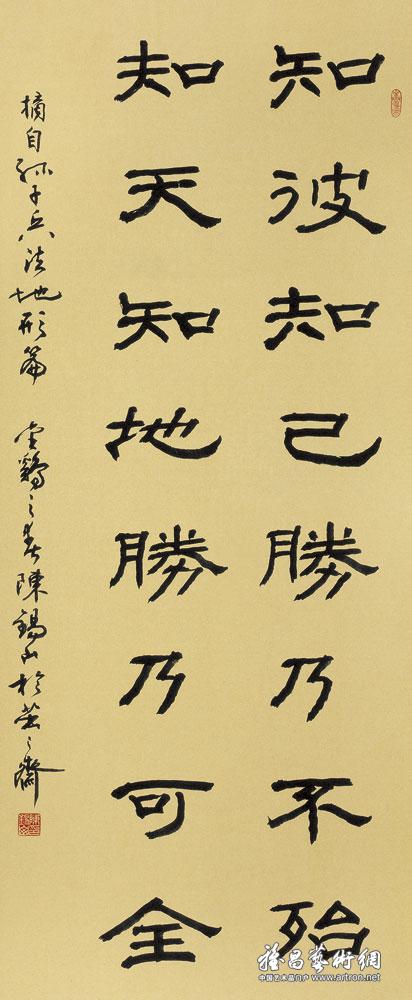 知彼知己勝乃不殆
知天知地勝乃可全
摘自孫子兵法地形篇 金鷄之春陳錫山於之齋
雅昌藝術網
中国艺术品门户 www.artron.net